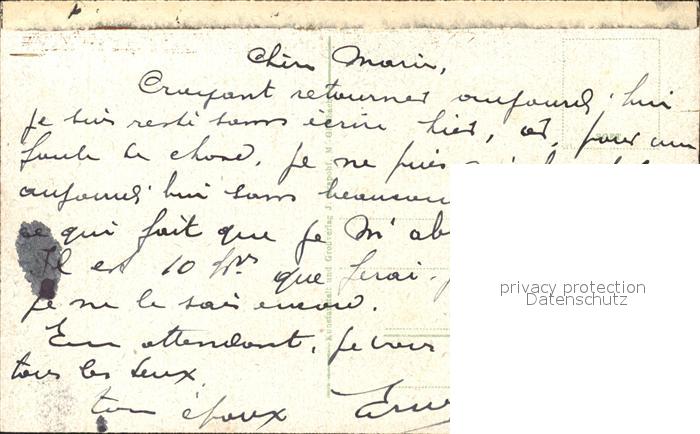 Chère Marie,
Croyant retourner aujourd'hui
je suis resté sans écrire hier, et, pour une
foule de chose, je ne puis
aujourd'hui sans beaucoup
ce qui fait que je m'ab
Il est 10 hrs que ferai-j
je ne le sais encore.
En attendant, je vous
tous les deux
ton époux Ern
privacy protection
Datenschutz